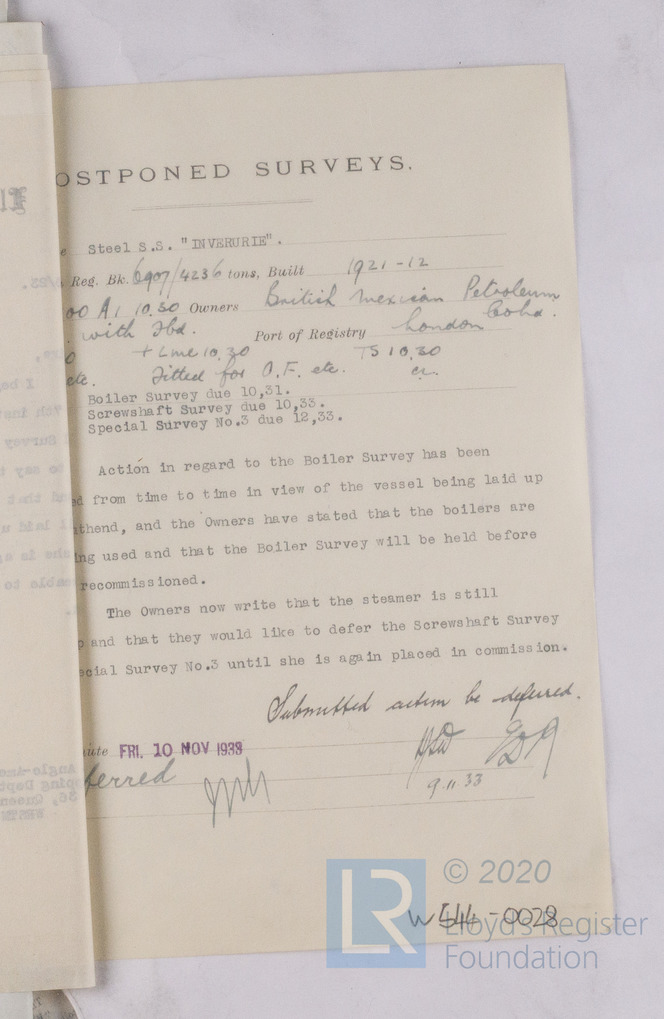 OSTPONED SURVEYS.
e Steel S.S. "INVERURIE".
Reg. Bk. 6907/4236 tons, Built 1921-12
00 A1 10.30 Owners British Mexican Petroleum
with fbd. Port of Registry London
+ LMC 10.30 TS 10.30
etc. Fitted for O.F. etc. CL.
Boiler Survey due 10,31.
Screwshaft Survey due 10,33.
Special Survey No.3 due 12,33.
Action in regard to the Boiler Survey has been
ed from time to time in view of the vessel being laid up
thend, and the Owners have stated that the boilers are
ng used and that the Boiler Survey will be held before
recommissioned.
The Owners now write that the steamer is still
p and that they would like to defer the Screwshaft Survey
ecial Survey No.3 until she is again placed in commission.
Submitted action be deferred.
nute FRI. 10 NOV 1933
ferred
9.11.33
© 2020
W544-0028
Lloyd's Register
Foundation
LR